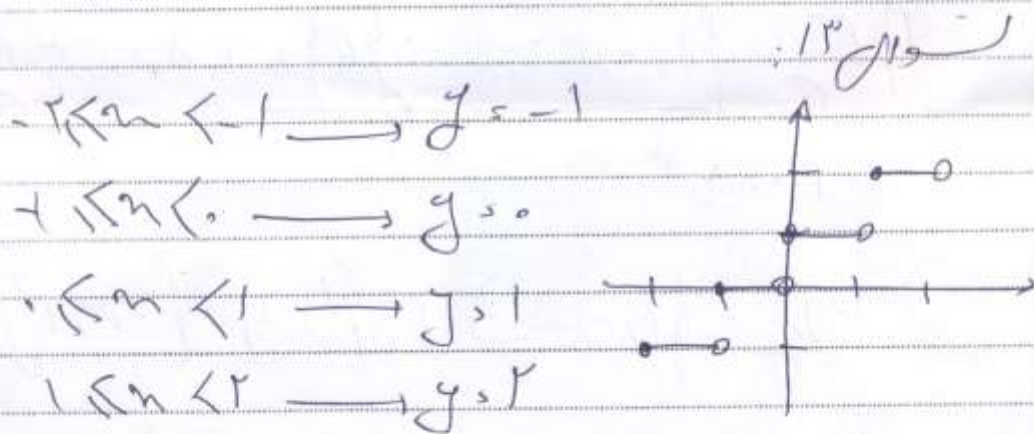 سوال ۱۳:
-۲ ≤ x < -۱ ⟶ y = -۱
-۱ ≤ x < ۰ ⟶ y = ۰
۰ ≤ x < ۱ ⟶ y = ۱
۱ ≤ x < ۲ ⟶ y = ۲